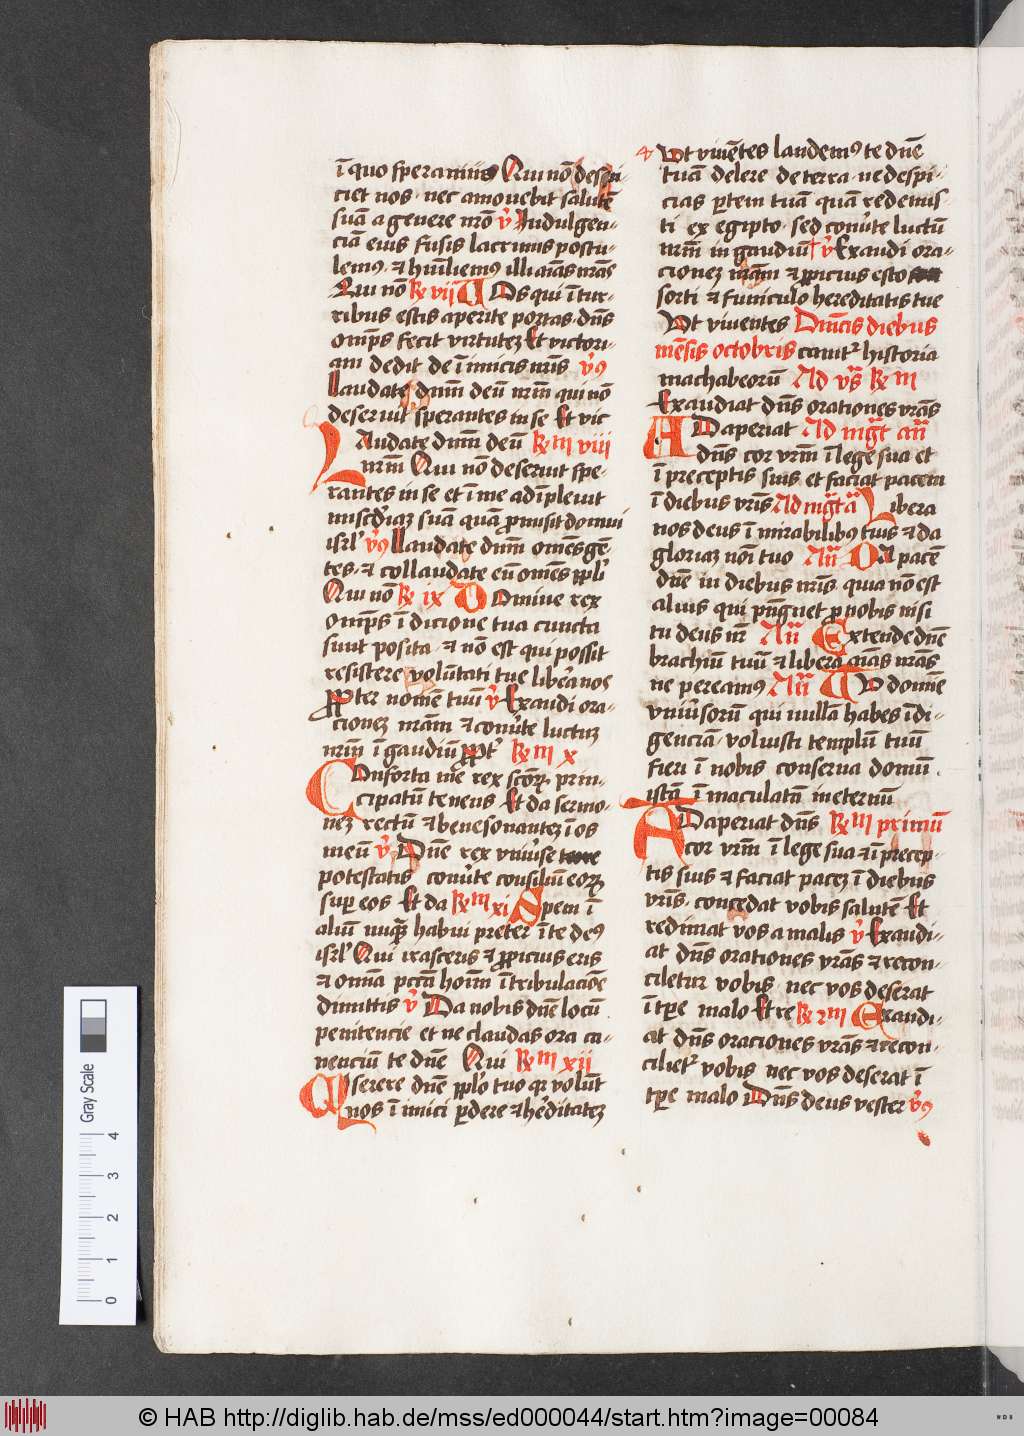 ī quo speramus Qui nō despi
ciet nos · nec amovebit salutē
suā a genere nr̄o v̄ Indulgen¬
ciā eius fusis lacrimis postu¬
lemus · ⁊ hūiliemus illi aīas nr̄as
Qui nō R̄ vii Vos qui ī tur¬
ribus estis aperite portas · dn̄s
omīps fecit virtutez Et victori¬
am dedit de īimicis nr̄is v̄s
Laudate dnm̄ deū nrm̄ qui nō
deseruit sperantes in se Et vic
Laudate dnm̄ deū R̄ m viii
nrm̄ Qui nō deseruit spe¬
rantes in se et ī me adīpleuit
miscd̓iaz suā quā promisit domui
isrl̓ v̄s Laudate dnm̄ om̄s gē¬
tes · ⁊ collaudate eū om̄s ppl̓i
Qui nō R̄ ix Domine rex
omīps ī dicione tua cuncta
sunt posita · ⁊ nō est qui possit
resistere volūtati tue libera nos
propter nomē tuū v̄ Exaudi ora¬
cionez nrām ⁊ conūte luctuz
nrm̄ ī gaudiū ppt̓ R̄ m x
Conforta me rex scōrꝝ prin¬
cipatū tenens Et da sermo¬
nez rectū ⁊ benesonantez ī os
meū v̄ Dn̄e rex vniūse
potestatis conūte consiliū eorꝝ
super eos Et da R̄ m xi Spem ī
aliū nūqꝫ habui preter ī te deus
isrl̓ Qui irasceris ⁊ propicius eris
⁊ omīa pctā hoīm ī tribulaciōe
dimittis v̄ Da nobis dn̄e locū
penitencie et ne claudas ora ca¬
nenciū te dn̄e Qui R̄ m xii
Miserere dn̄e ppl̓o tuo qꝛ volūt
nos īimici perdere ⁊ hēditatez
Ut viuētes laudemus te dn̄e
tuā delere de terra · ne despi¬
cias partem tuā quā redemis¬
ti ex egipto · sed conūte luctū
nrm̄ in gaudiū v̄ Exaudi ora¬
cionez nrām ⁊ ppicius esto
sorti ⁊ funiculo hereditatis tue
Ut viuentes Dnīcis diebus
mēsis octobris canit̓ historia
machabeorū Ad vs̄ R̄ m
Exaudiat dn̄s orationes vrās
Adaperiat Ad mgt̄ an̄
dn̄s cor vrm̄ ī lege sua et
ī preceptis suis et faciat pacem
ī diebus vrīs Ad mgt̄ a Libera
nos deus ī mirabilibus tuis ⁊ da
gloriaz noī tuo An̄ Da pacē
dn̄e in diebus nrīs · quia nō est
alius qui pugnet pro nobis nisi
tu deus nr̄ An̄ Extende dn̄e
brachiū tuū ⁊ libera aīas nrās
ne pereamus An̄ Tu domīe
vniūsorū qui nullā habes īdi¬
genciā · voluisti templū tuū
fieri ī nobis conserua domū
istā īmaculatā in eternū
Adaperiat dn̄s R̄ m primū
cor vrm̄ ī lege sua ⁊ ī precep¬
tis suis ⁊ faciat pacez ī diebus
vrīs · concedat vobis salutē Et
redimat vos a malis v̄ Exaudi¬
at dn̄s orationes vrās ⁊ recon¬
cilietur vobis nec vos deserat
ī tp̄e malo Et re R̄ 2 m Exaudi¬
at dn̄s oraciones vrās ⁊ recon¬
ciliet̓ vobis nec vos deserat ī
tp̄e malo Dn̄s deus vester v̄s
Gray Scale
0 1 2 3 4
© HAB http://diglib.hab.de/mss/ed000044/start.htm?image=00084